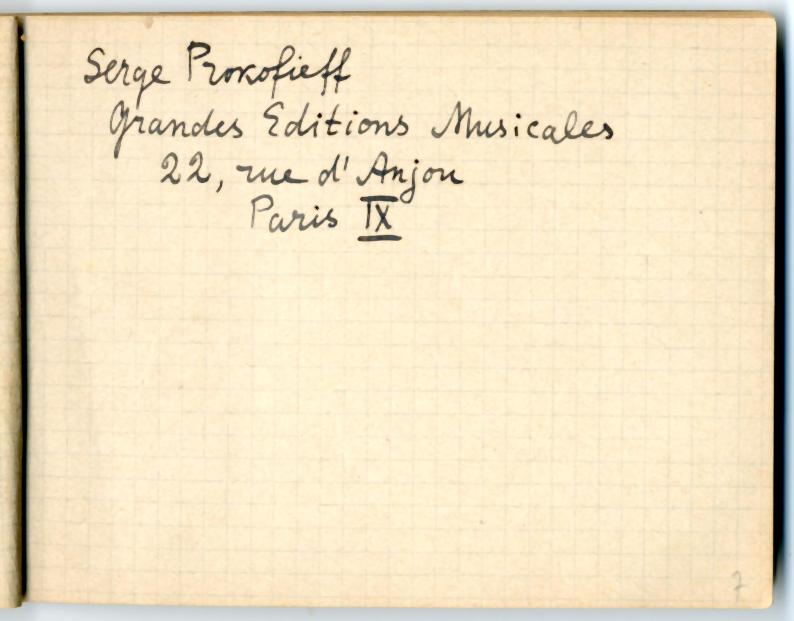 Serge Prokofieff
Grandes Editions Musicales
22, rue d'Anjou
Paris IX
7